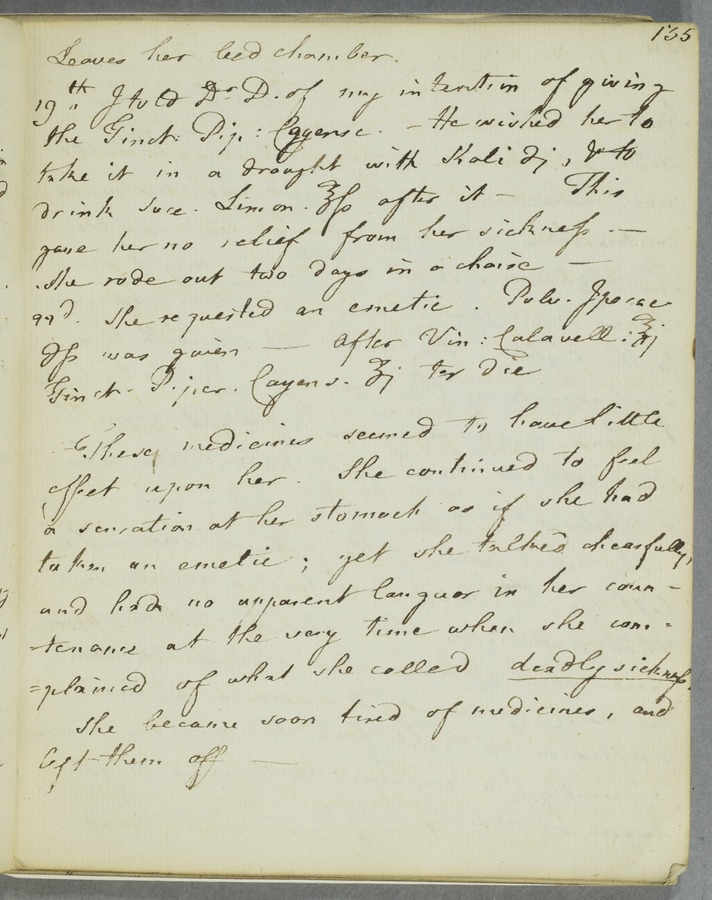 155
Leaves her bed chamber.
19th I told Dr. D. of my intention of giving
the Tinct: Pip: Cayense. – He wished her to
take it in a draught with Kali ʒj, & to
drink succ. Limon. ℥ß after it – This
gave her no relief from her sickneſs. –
She rode out two days in a chaise –
22d. She requested an emetic. Pulv. Ipecac
℈ß was given – After Vin: Calavell: ℥j
Tinct. Piper. Cayens. ʒj ter die
These medicines seemed to have little
effect upon her. She continued to feel
a sensation at her stomach as if she had
taken an emetic; yet she talked chearfully,
and had no apparent languor in her coun-
-tenance at the very time when she com-=
=plained of what she called deadly sickneſs.
She became soon tired of medicines, and
left them off –